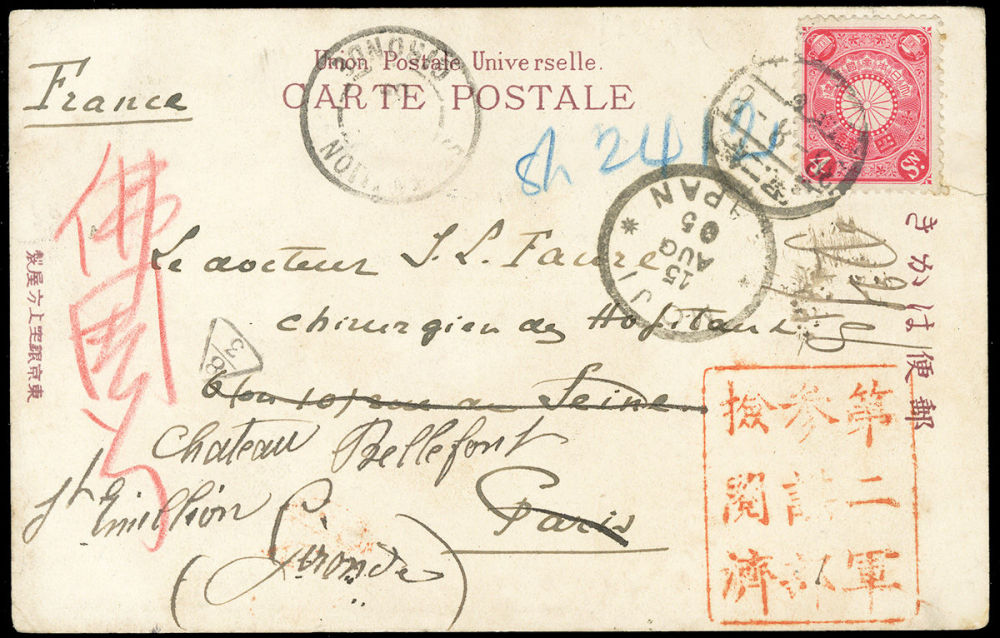 Union Postale Universelle.
CARTE POSTALE
France
佛國行
東京銀座上方屋製
きかは便郵
4 SN
sh 24
JAPAN
15
AUG
05
GIRONDE
Le docteur J. L. Faure
chirurgien des Hopitaux
rue de Seine
Paris
Chateau Bellefont
St Emillion
(Gironde)
第二軍
参謀部
検閲濟